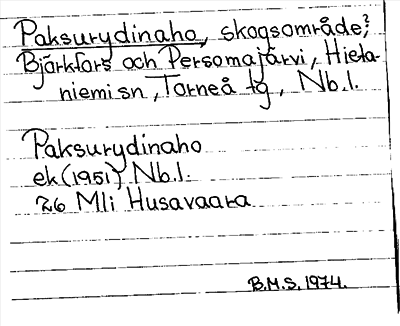 Paksurydinaho, skogsområde;?
Björkfors och Persomajärvi, Hieta-
niemi sn, Torneå tg, Nb.l.
Paksurydinaho
ek (1951) Nb.l.
26 Mli Husavaara
B.M.S. 1974.